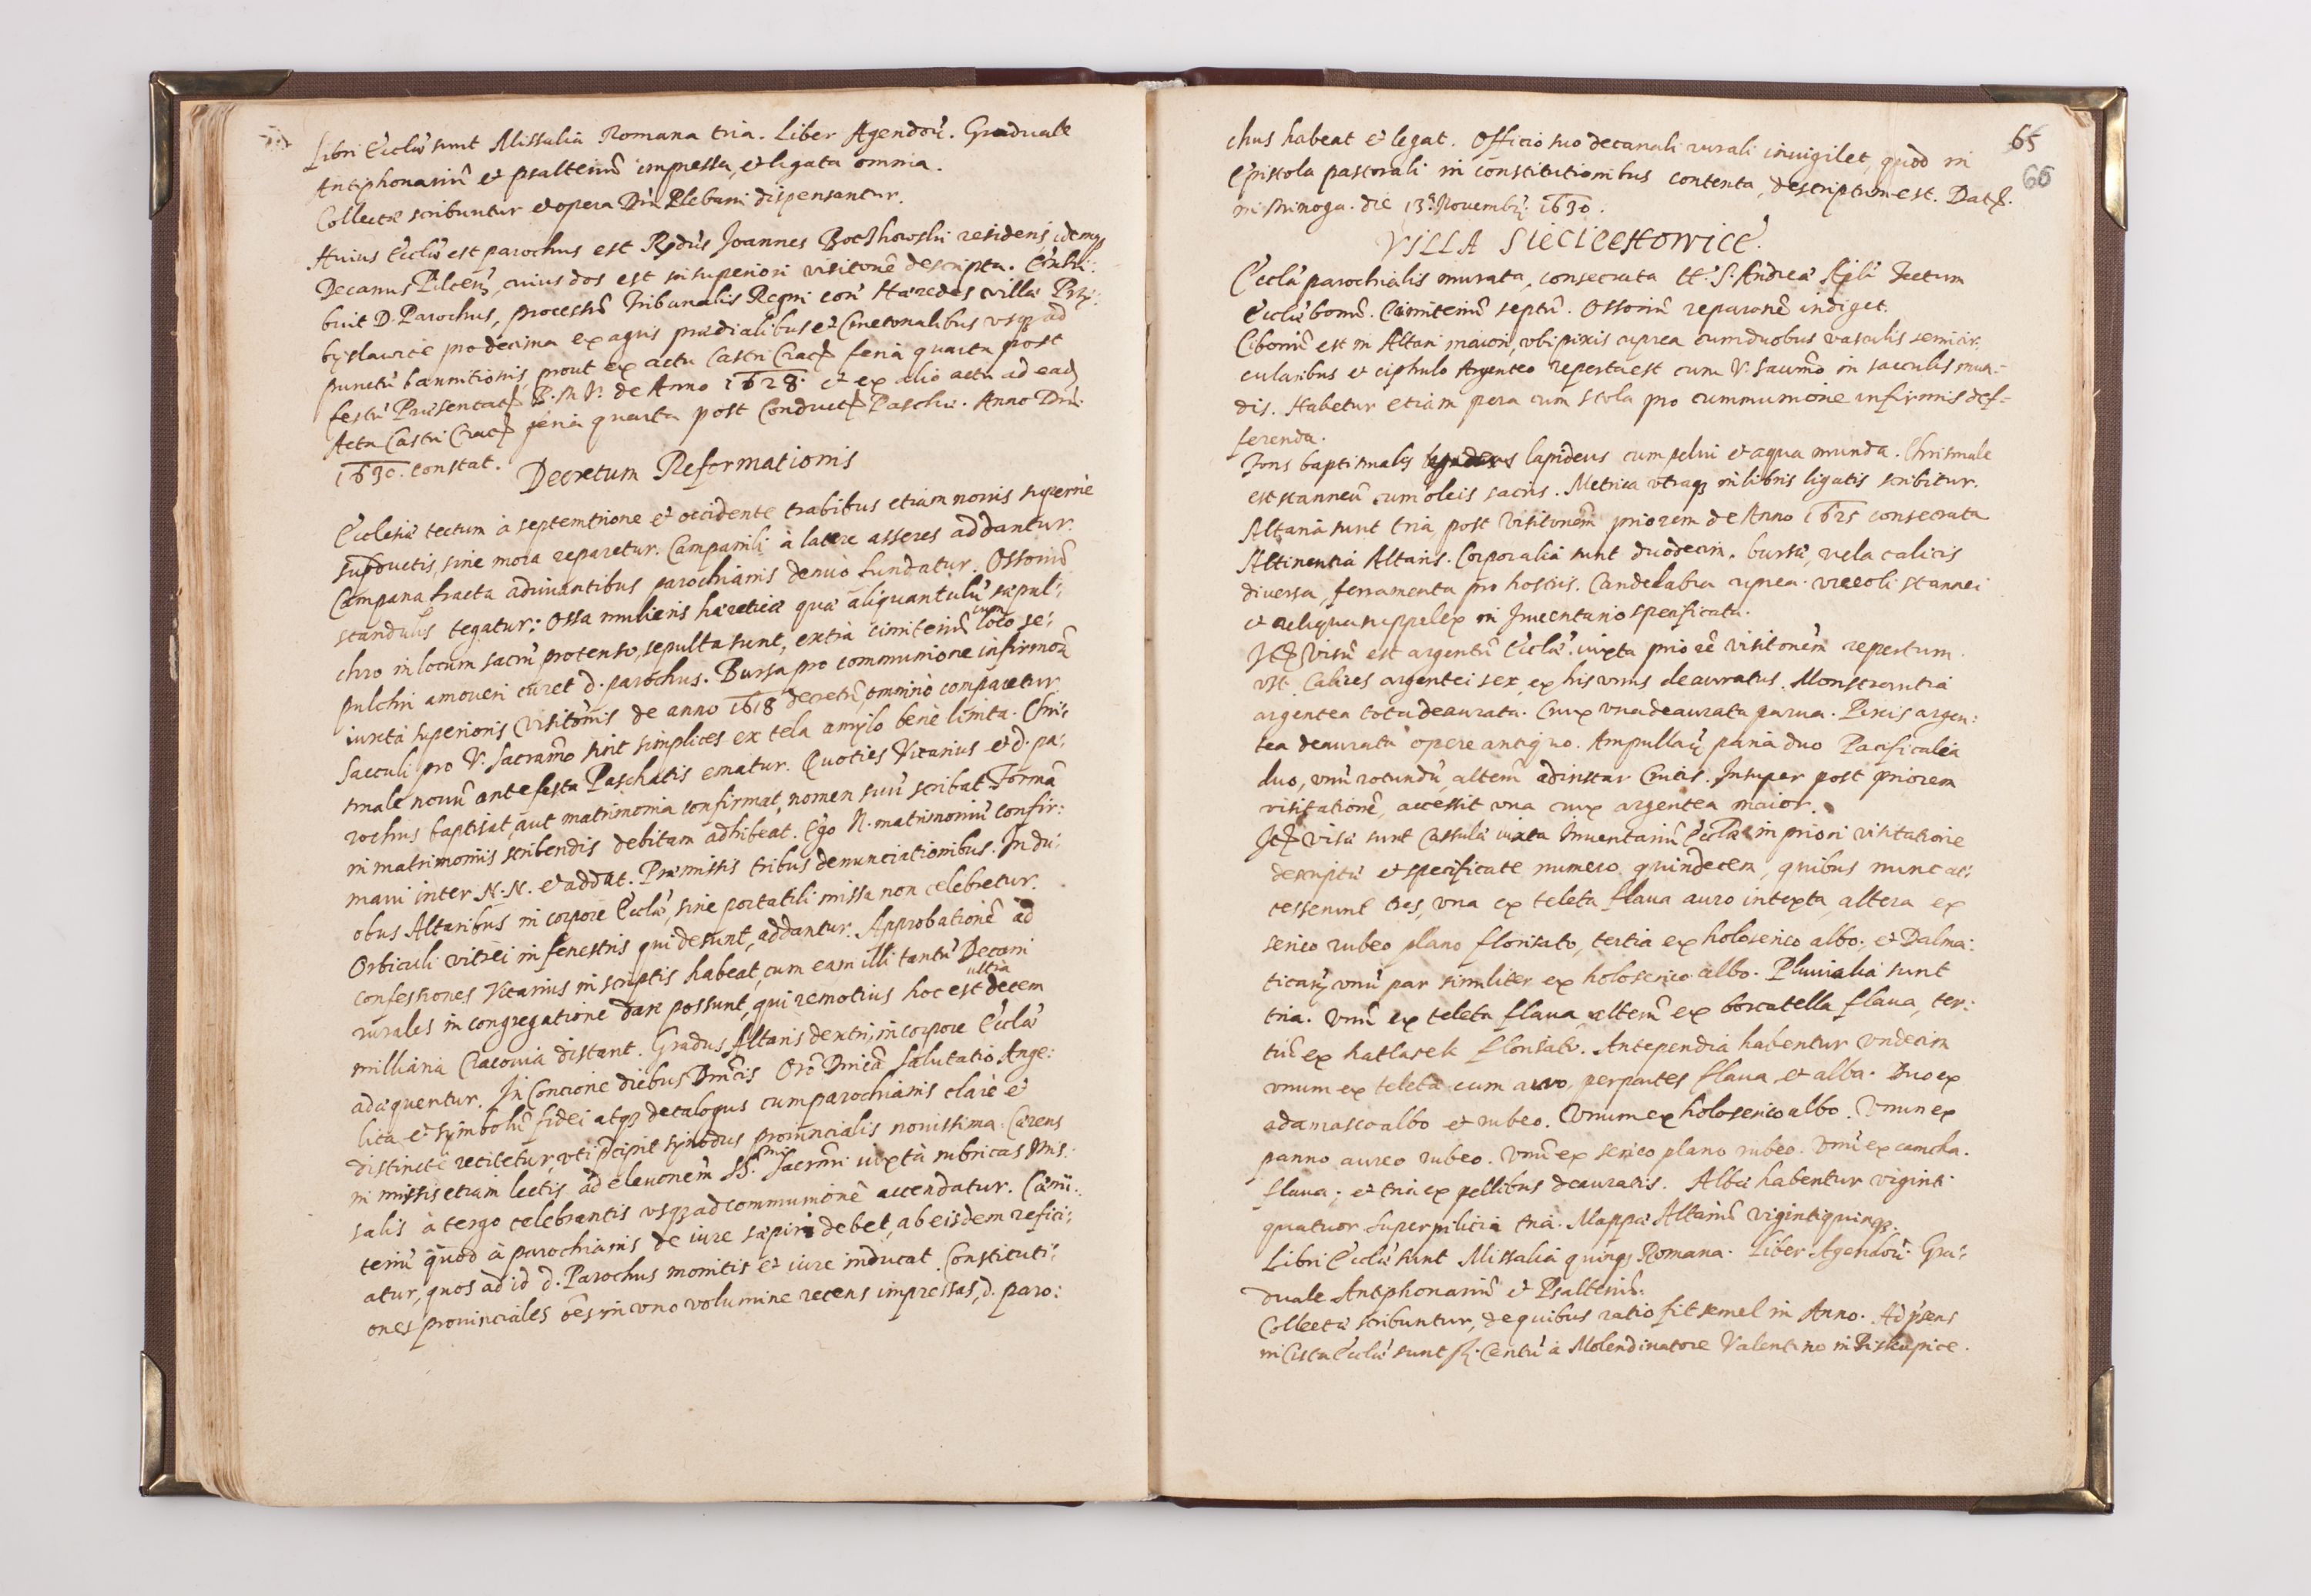 Libri Eccłæ sunt Missalia Romana tria. Liber Agendorũ. Graduale
Antiphonariũ et psalteriũ impressa, et ligata omnia.
Collectæ scribuntur et opera Dñi Plebani dispensantur.
Huius Eccłæ est parochus est Rṇdus Joannes Boczkowski residens, idemq;
Decanus Pilceñ, cuius dos est in superiori visitõne descripta. Exhi:
buit D. Parochus, processũ Tribunalis Regni con Hæredes villæ Przy:
byslawice pro decima ex agris prædialibus et Cmetonalibus vsq; ad
punctũ bannitionis, prout ex actu Castri Crac̃ feria quarta post
festũ Præsentat̃ B. M. V. de Anno 1628. et ex alio actu ad ead̃
Acta Castri Crac̃ feria quarta post Conduct̃ Paschæ. Anno Dñi
1630. constat.
Decretum Reformationis
Ecclesiæ tectum à septemtrione et occidente trabibus etiam nouis supernè
subductis, sine mora reparetur. Campanili à latere asseres addantur.
Campana fracta adiuuantibus parochianis denuò fundatur. Ossoriũ
scandulis tegatur: Ossa mulieris hæreticæ quæ aliquantulũ sepul:
chro in locum sacrũ protenso, sepulta sunt, extra cimiteriũ cum loco se:
pulchri amoueri curet d. parochus. Bursa pro communione infirmorũ
iuxta superioris Visitõnis de anno 1618 decretũ, omninò comparetur
Sacculi pro V. Sacramõ sint simplices ex tela amylo benè linita. Chris:
male nouũ ante festa Paschatis ematur. Quoties Vicarius et d. pa:
rochus baptisat, aut matrimonia confirmat, nomen suũ scribat. Formã
in matrimoniis scribendis debitam adhibeat. Ego N. matrimoniũ confir:
maui inter N. N. et addat. Præmissis tribus denunciationibus. In du:
obus Altaribus in corpore Eccłæ, sine portatili missa non celebretur.
Orbiculi vitrei in fenestris qui desunt, addantur. Approbationẽ ad
confessiones Vicarius in scriptis habeat, cum eam illi tantũ Decani
rurales in congregatione dare possunt, qui remotius hoc est vltra decem
milliaria Cracouia distant. Gradus Altaris dextri, in corpore Eccłæ
adæquentur. In Concione diebus Dnĩcis Orõ Dnĩca Salutatio Ange:
lica et symbolũ fidei atq; decalogus cum parochianis clarè et
distinctè recitetur, vti p̃cipit synodus prouincialis nouissima. Cæreus
in missis etiam lectis ad eleuonẽm SS.mi Sacrm̃i iuxtà rubricas Mis:
salis à tergo celebrantis vsq; ad communionẽ accendatur. Cæmi:
teriũ quod à parochianis de iure sæpiri debet, ab eisdem refici:
atur, quos ad id d. Parochus monitis et iure inducat. Constituti:
ones prouinciales oẽs in vno volumine recens impressas, d. paro:
65
66
chus habeat et legat. Officio suo decanali rurali inuigilet, quod in
Epistola pastorali in constitutionibus contenta, descriptum est. Dat̃.
in Minoga. die 13. Nouembr̃. 1630.
VILLA SIECIECHOWICE.
Eccła parochialis murata, consecrata tt. S. Andreæ Apłi Tectum
Eccłæ bonũ. Cimiteriũ septũ. Ossoriũ reparonẽ indiget.
Ciboriũ est in Altari maiori, vbi pixis cuprea cum duobus vasculis semicir:
cularibus et ciphulo Argenteo reperta est cum V. Sacrmõ in sacculis mun:
dis. Habetur etiam pera cum stola pro cummunione infirmis def:
ferenda.
Fons baptismalis lapideus cum pelui et aqua munda. Chrismale
est stanneũ cum oleis sacris. Metrica vtraq; in libris ligatis scribitur.
Altaria sunt tria, post Visitonẽm priorem de Anno 1625 consecrata
Attinentia Altaris. Corporalia sunt duodecim. bursæ, vela calicis
diuersa, ferramenta pro hostiis. Candelabra cuprea. vrceoli stannei
et reliqua suppelex in Inuentario specificata.
Itm̃ visũ est argentũ Eccłæ. iuxta priorẽ visitonẽm repertum.
vst. Calices argentei sex, ex his vnus deauratus. Monstrantia
argentea tota deaurata. Crux vna deaurata parua. Pixis argen:
tea deaurata opere antiquo. Ampullarũ paria duo Pacificalia
duo, vnũ rotundũ, alterũ ad instar Crucis. Insuper post priorem
visitationẽ, accessit vna crux argentea maior.
Itm̃ visæ sunt Casulæ iuxta Inuentariũ Eccłæ in priori visitatione
descriptæ et specificate numero quindecem, quibus nunc ac:
cesserunt tres, vna ex teleta flaua auro intexta, altera ex
serico rubeo plano florisato, tertia ex holoserico albo. et Dalma:
ticarũ vnũ par similiter ex holoserico albo. Pluuialia sunt
tria. Vnũ ex teleta flaua alterũ ex borcatella flaua, ter:
tiũ ex hatlasek florisato. Antependia habentur vndecim
vnum ex teleta cum auro, per partes flaua et alba. Duo ex
adamasco albo et rubeo. Vnum ex holoserico albo. Vnun ex
panno aureo rubeo. Vnũ ex serico plano rubeo. Vnũ ex camcha.
flaua; et tria ex pellibus deauratis. Albæ habentur viginti
quatuor. Superpilicia tria. Mappæ Altariũ vigintiquinq;.
Libri Eccłæ sunt Missalia quinq; Romana. Liber Agendorũ. Gra:
duale Antiphonariũ et Psalteriũ.
Collectæ scribuntur, de quibus ratio fit semel in Anno. Ad p̃sens
in Cista Eccłæ sunt fl. Centũ à Molendinatore Valentino in Biskupice.